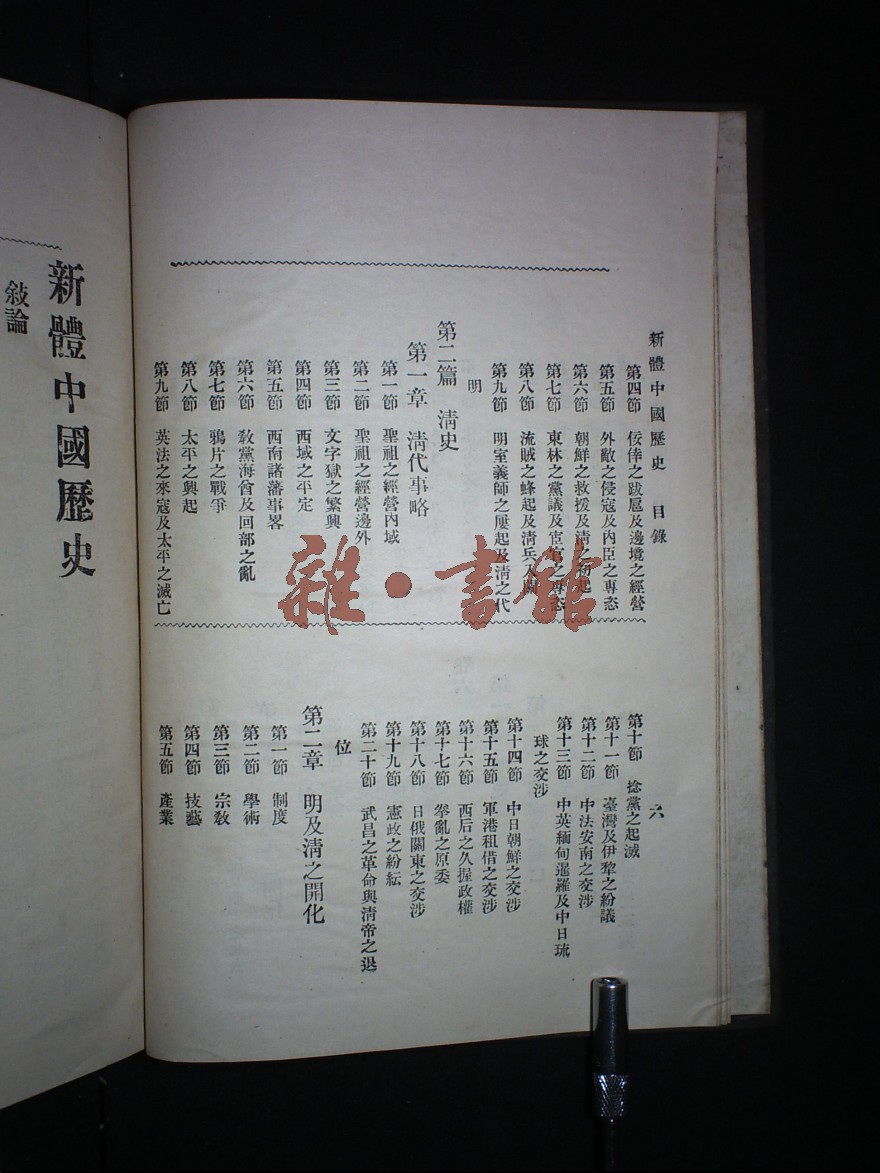 新體中國歷史 目錄
六
第四節 佞倖之跋扈及邊境之經營
第五節 外敵之侵寇及內臣之專恣
第六節 朝鮮之救援及淸之初起
第七節 東林之黨議及宦官之專恣
第八節 流賊之蜂起及淸兵入關
第九節 明室義師之屢起及淸之代
明
第二篇 淸史
第一章 淸代事略
第一節 聖祖之經營內域
第二節 聖祖之經營邊外
第三節 文字獄之繁興
第四節 西域之平定
第五節 西南諸藩事畧
第六節 敎黨海曾及回部之亂
第七節 鴉片之戰爭
第八節 太平之興起
第九節 英法之來寇及太平之滅亡
第十節 捻黨之起滅
第十一節 臺灣及伊犂之紛議
第十二節 中法安南之交涉
第十三節 中英緬甸暹羅及中日琉
球之交涉
第十四節 中日朝鮮之交涉
第十五節 軍港租借之交涉
第十六節 西后之久握政權
第十七節 拳亂之原委
第十八節 日俄關東之交涉
第十九節 憲政之紛紜
第二十節 武昌之革命與淸帝之退
位
第二章 明及淸之開化
第一節 制度
第二節 學術
第三節 宗敎
第四節 技藝
第五節 產業
新體中國歷史
敍論
雜·書館